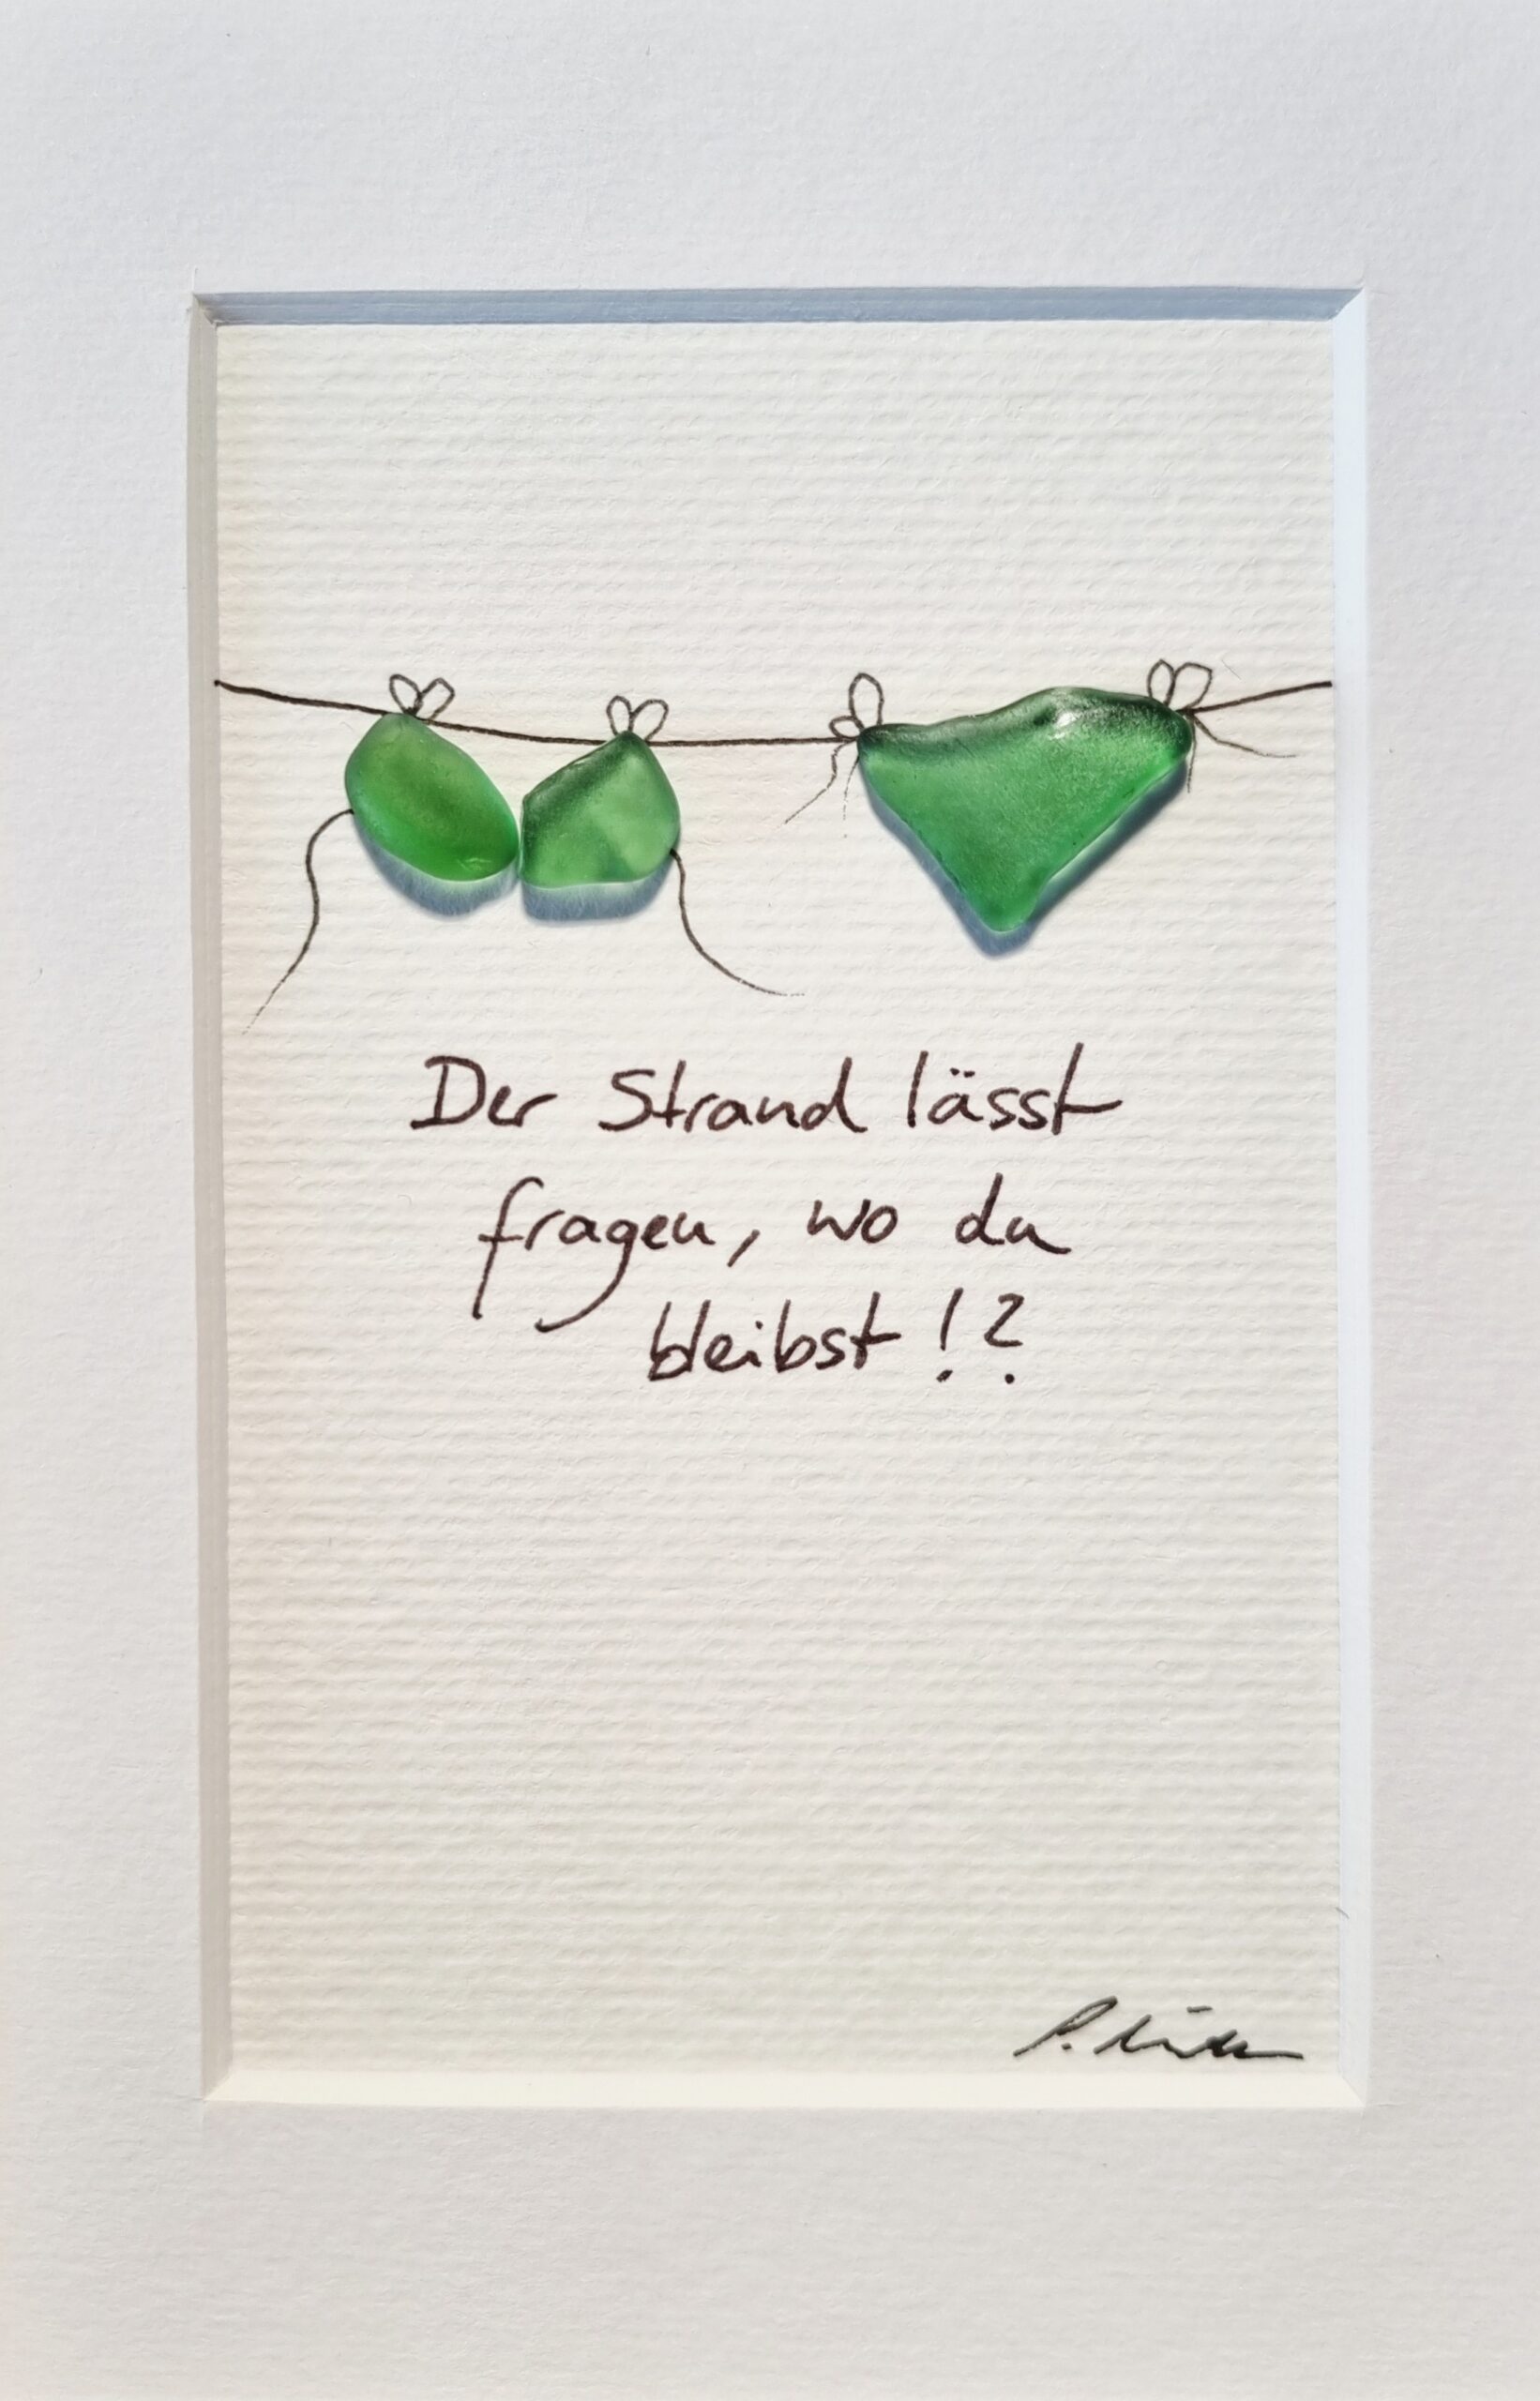 Der Strand lässt
fragen, wo du
bleibst!?